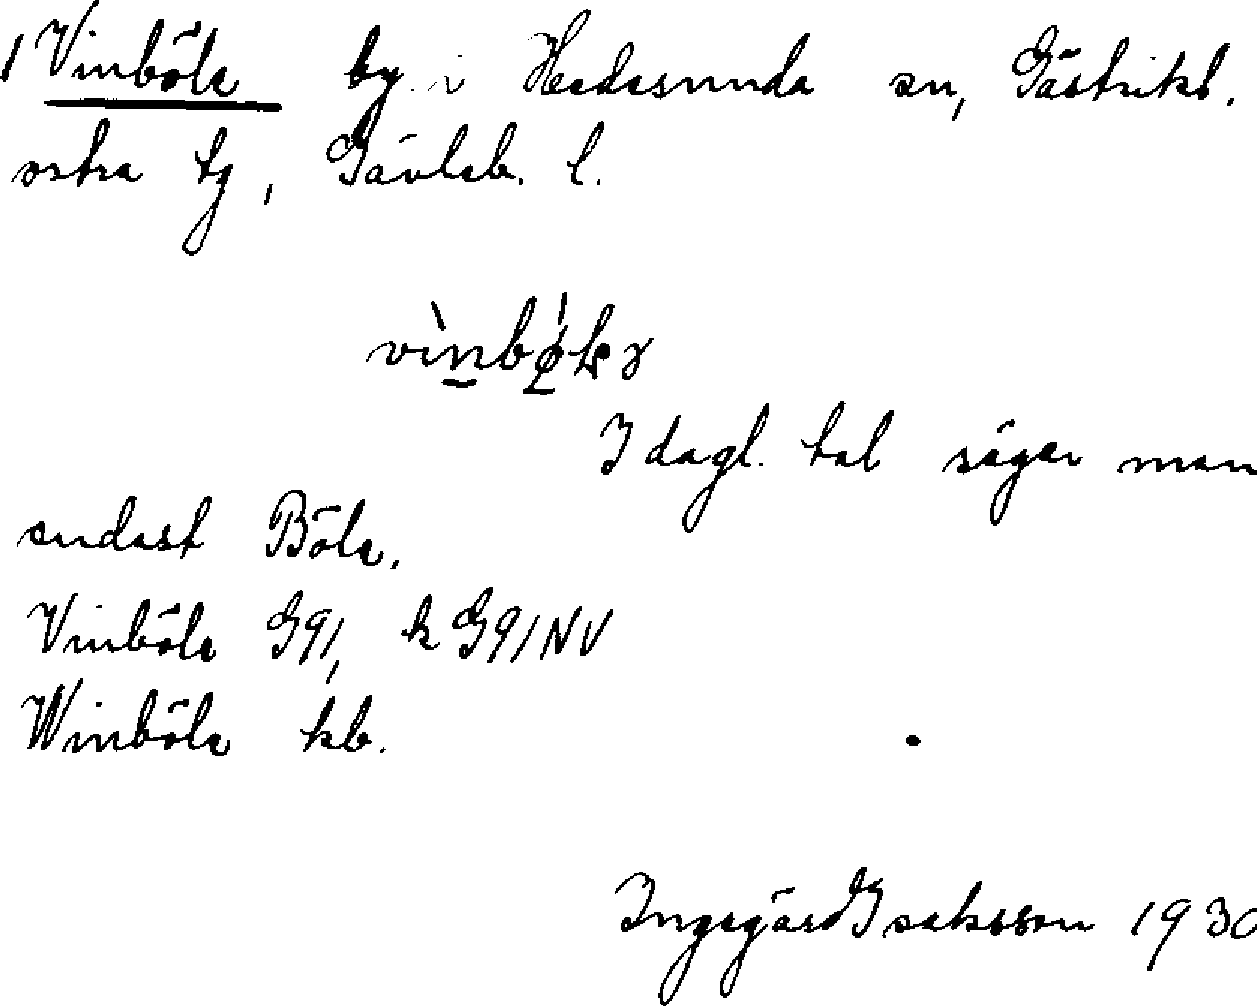 1 Vinböle by i Hedesunda sn, Gästrikl.
östra tg, Gävleb. l.
I dagl. tal säger man
endast Böle.
Vinböle G91, k G91NV
Winböle kb.
Ingegärd Isaksson 1930